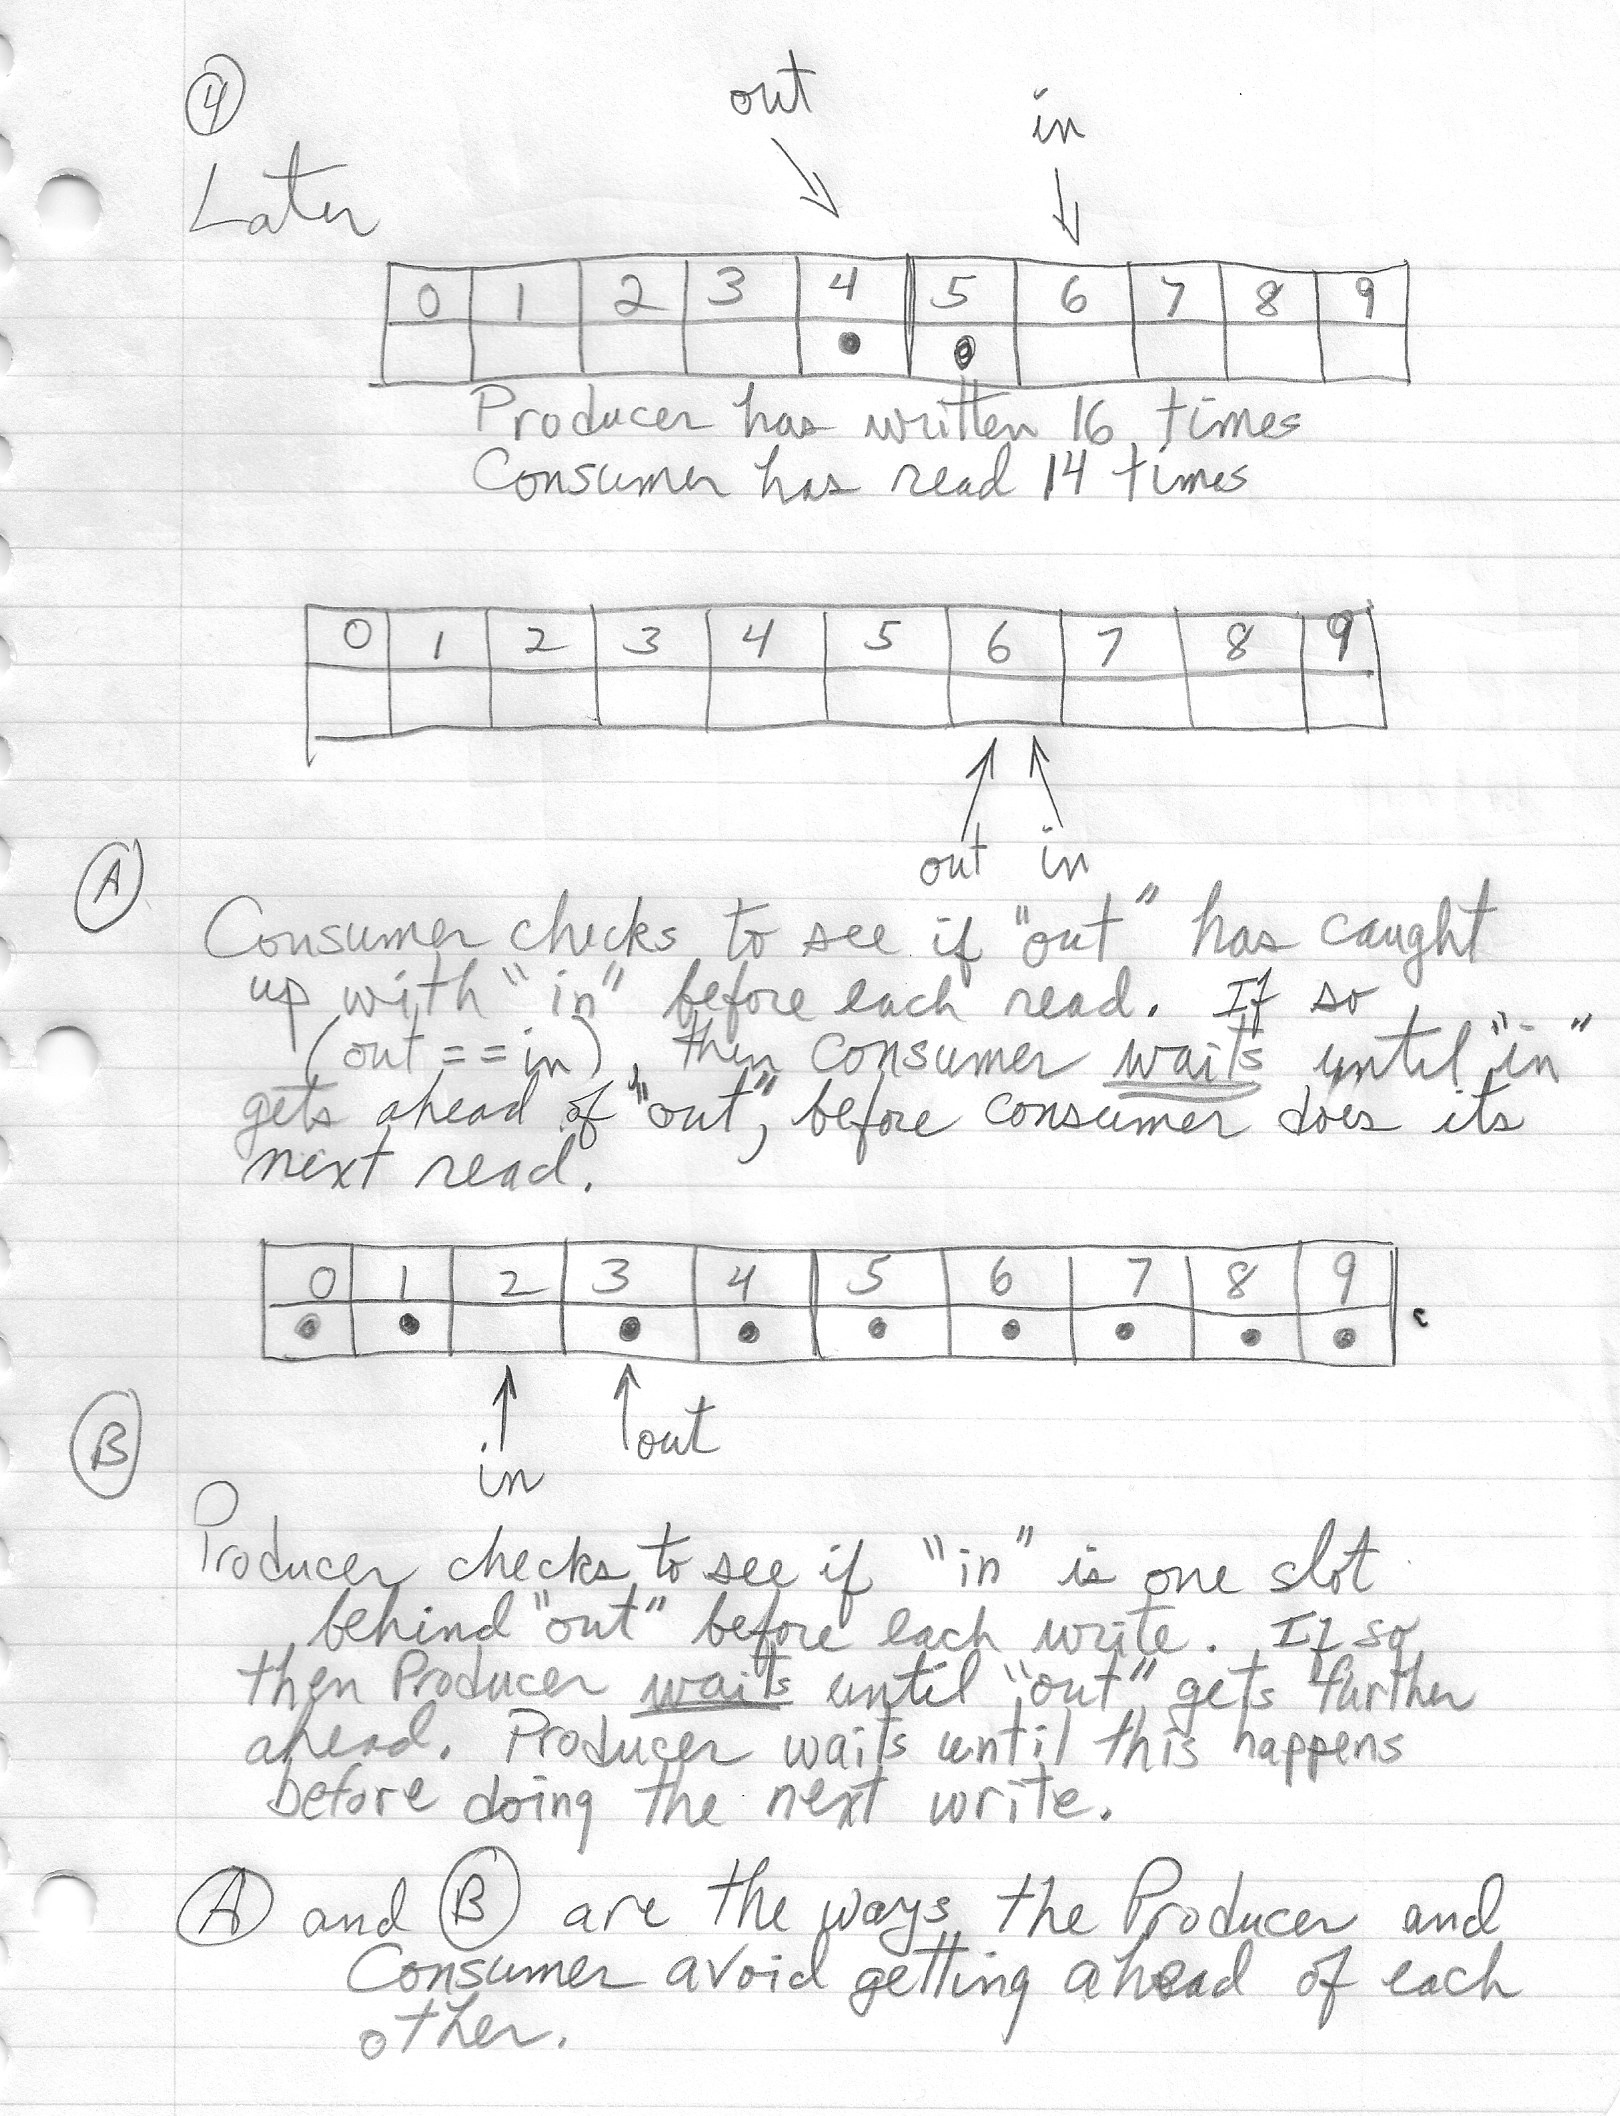 ④
Later
out
in
0 1 2 3 4 5 6 7 8 9
Producer has written 16 times
Consumer has read 14 times
0 1 2 3 4 5 6 7 8 9
out in
Ⓐ
Consumer checks to see if "out" has caught
up with "in" before each read. If so
(out == in), then consumer waits until "in"
gets ahead of "out", before consumer does its
next read.
0 1 2 3 4 5 6 7 8 9
in
out
Ⓑ
Producer checks to see if "in" is one slot
behind "out" before each write. If so
then Producer waits until "out" gets further
ahead. Producer waits until this happens
before doing the next write.
Ⓐ and Ⓑ are the ways the Producer and
Consumer avoid getting ahead of each
other.